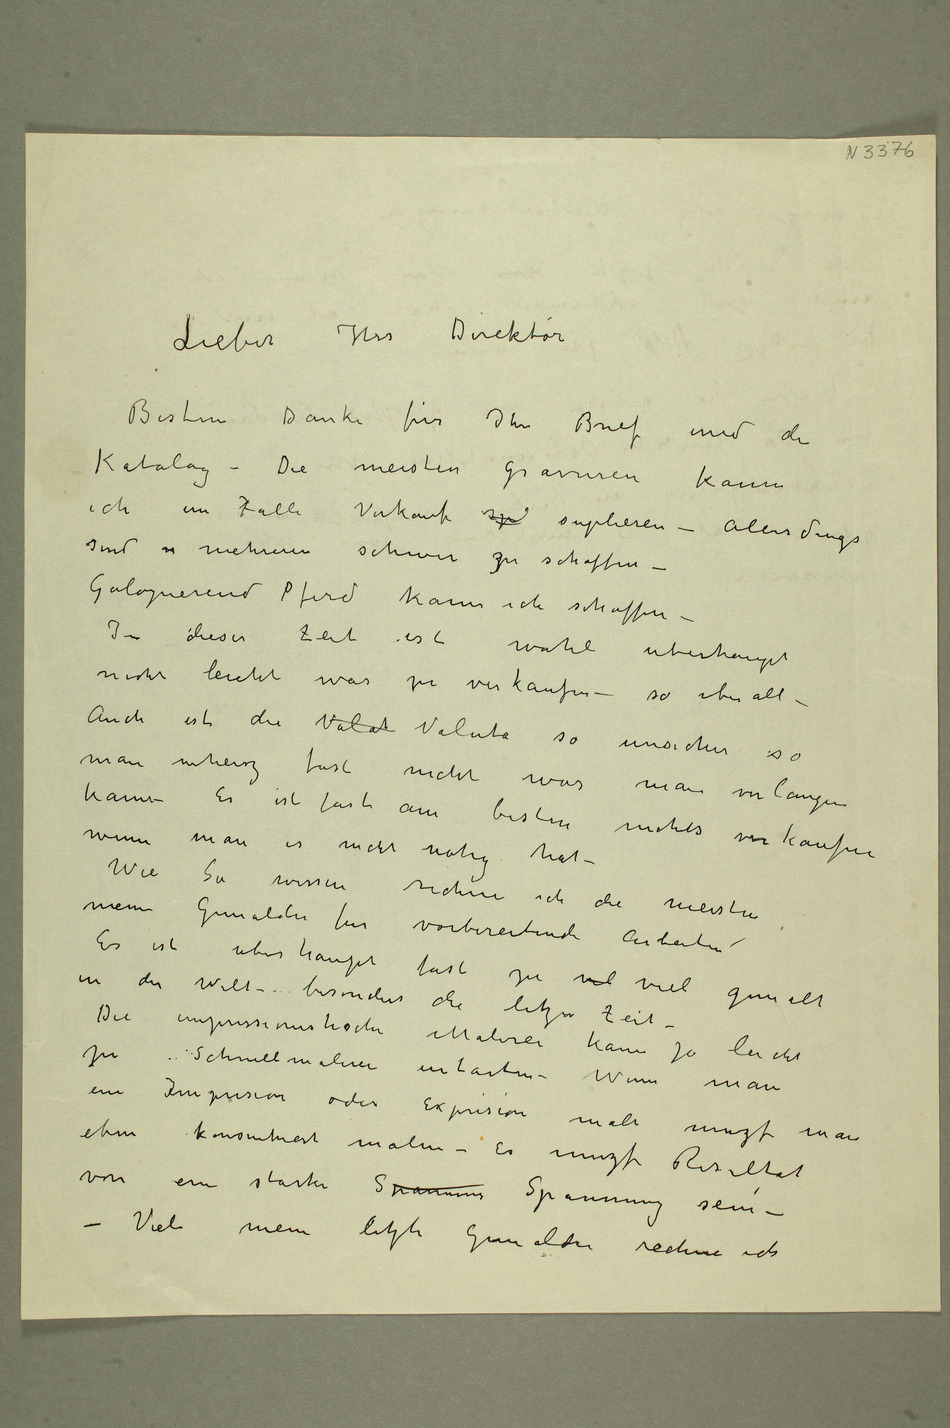 N 3376
Lieber Herr Direktör
Besten Danke für Ihn Brief und die
Katalog – Die meisten Gravuren kann
ich im Falle Verkauf suplieren – Allerdings
sind mehreren schwer zu schaffen –
Galopierend Pferd kann ich schaffen –
In dieser Zeit ist wohl überhaupt
nicht leicht was zu verkaufen – so überall –
Auch ist die Valut Valuta so unsicher so
man fast nicht was man verlangen
kann – Es ist fast am besten nichts verkaufen
wenn man es nicht nötig hat –
Wie Sie wissen rechne ich die meisten
meine Gemälder für vorbereitende Arbeiten –
Es ist überhaupt fast zu viel gemalt
in der Welt – besonders die letzte Zeit –
Die impressionistische Malerei kann ja leicht
zu Schnellmalerei entarten – Wenn man
ein Impresion oder Expresion malt muzs man
eben konsentriert malen – Es muzs Resultat
von ein starke Spannung Spannung sein –
– Viele meine letzte Gemälder rechne ich